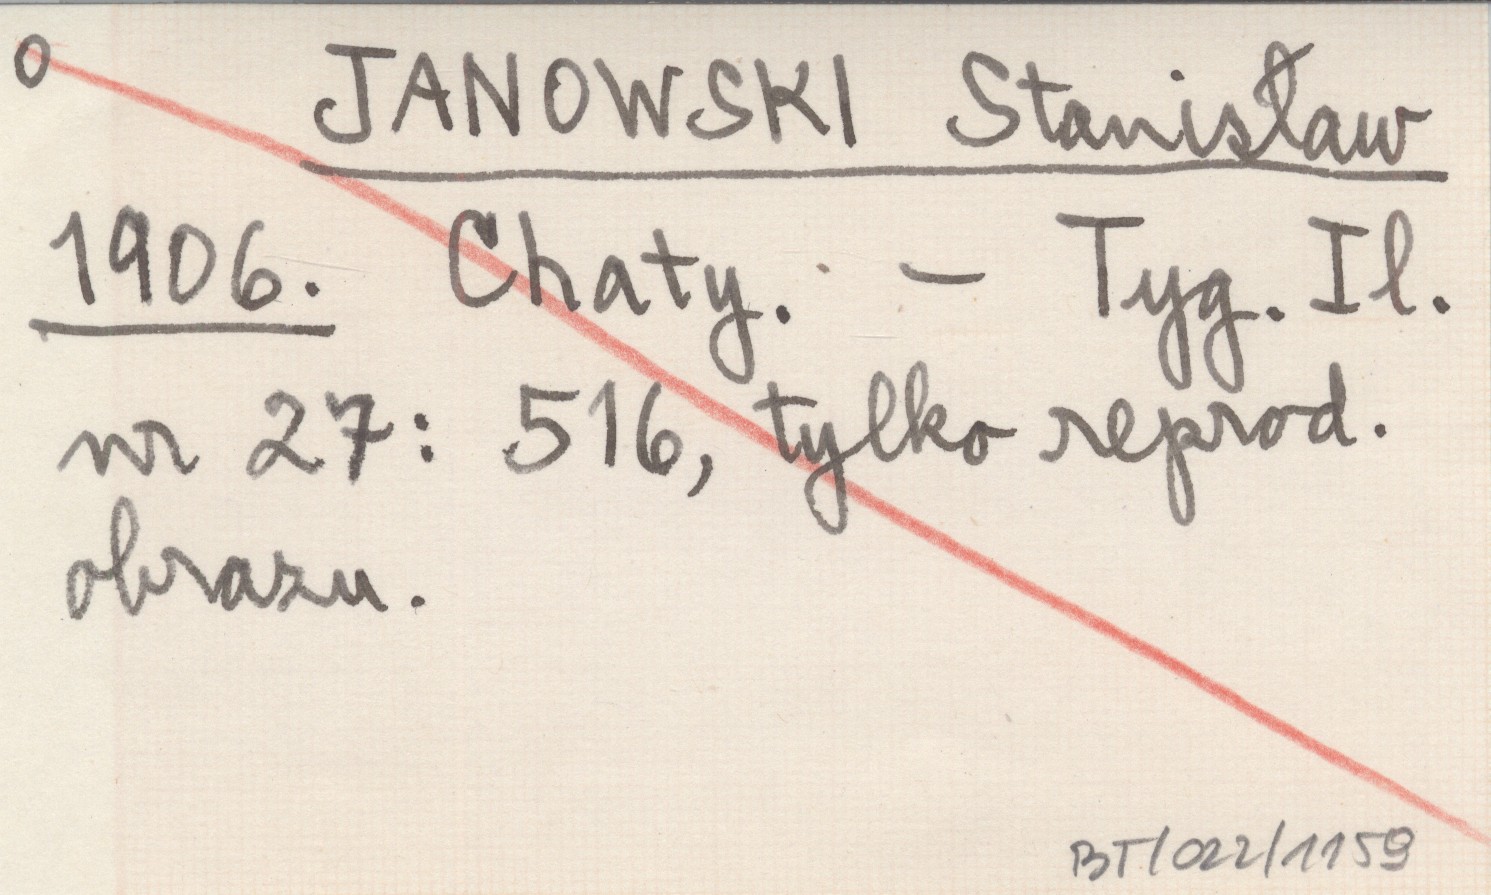 o JANOWSKI Stanisław
1906. Chaty. – Tyg. Il.
nr 27: 516, tylko reprod.
obrazu.
BT/022/1159